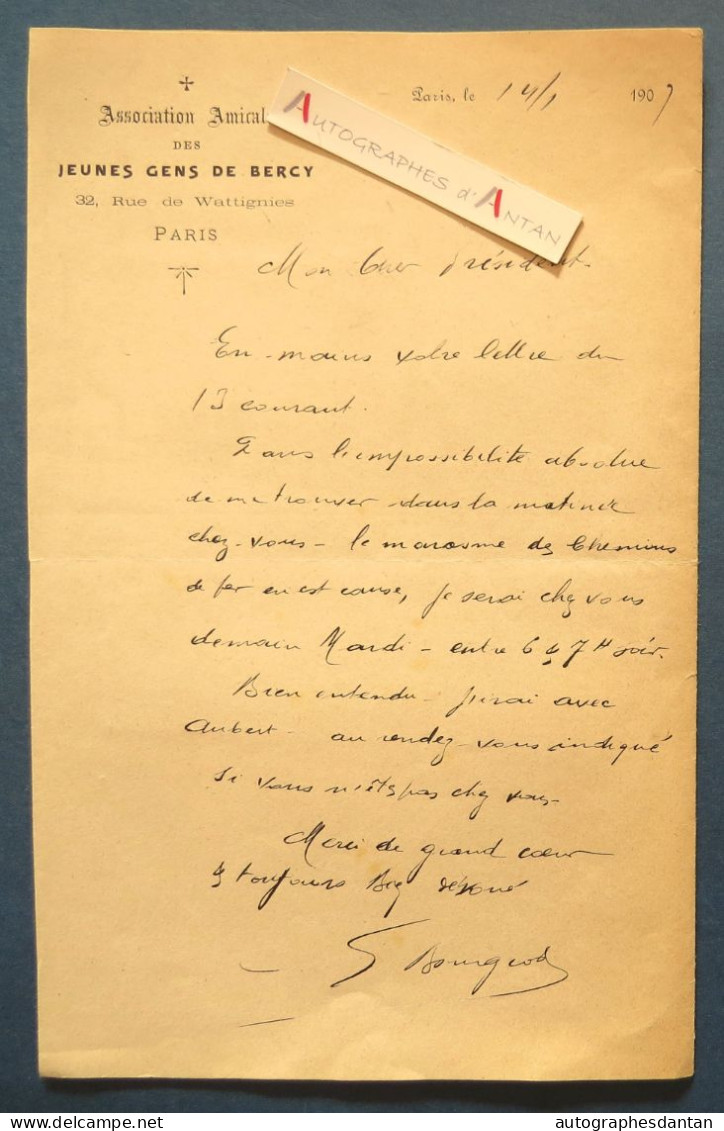 Association Amical
DES
JEUNES GENS DE BERCY
32, Rue de Wattignies
PARIS
Paris, le 14/1 1907
AUTOGRAPHES d'ANTAN
Mon Cher Président
En mains votre lettre du
13 courant.
Dans l'impossibilité absolue
de me trouver dans la matinée
chez-vous - le marasme des Chemins
de fer en est cause, je serai chez vous
demain Mardi - entre 6 & 7 H soir.
Bien entendu - j'irai avec
Aubert - au rendez-vous indiqué
si vous n'êtes pas chez vous -
Merci de grand cœur
& toujours dévoué
Bourgeois
autographesdantan